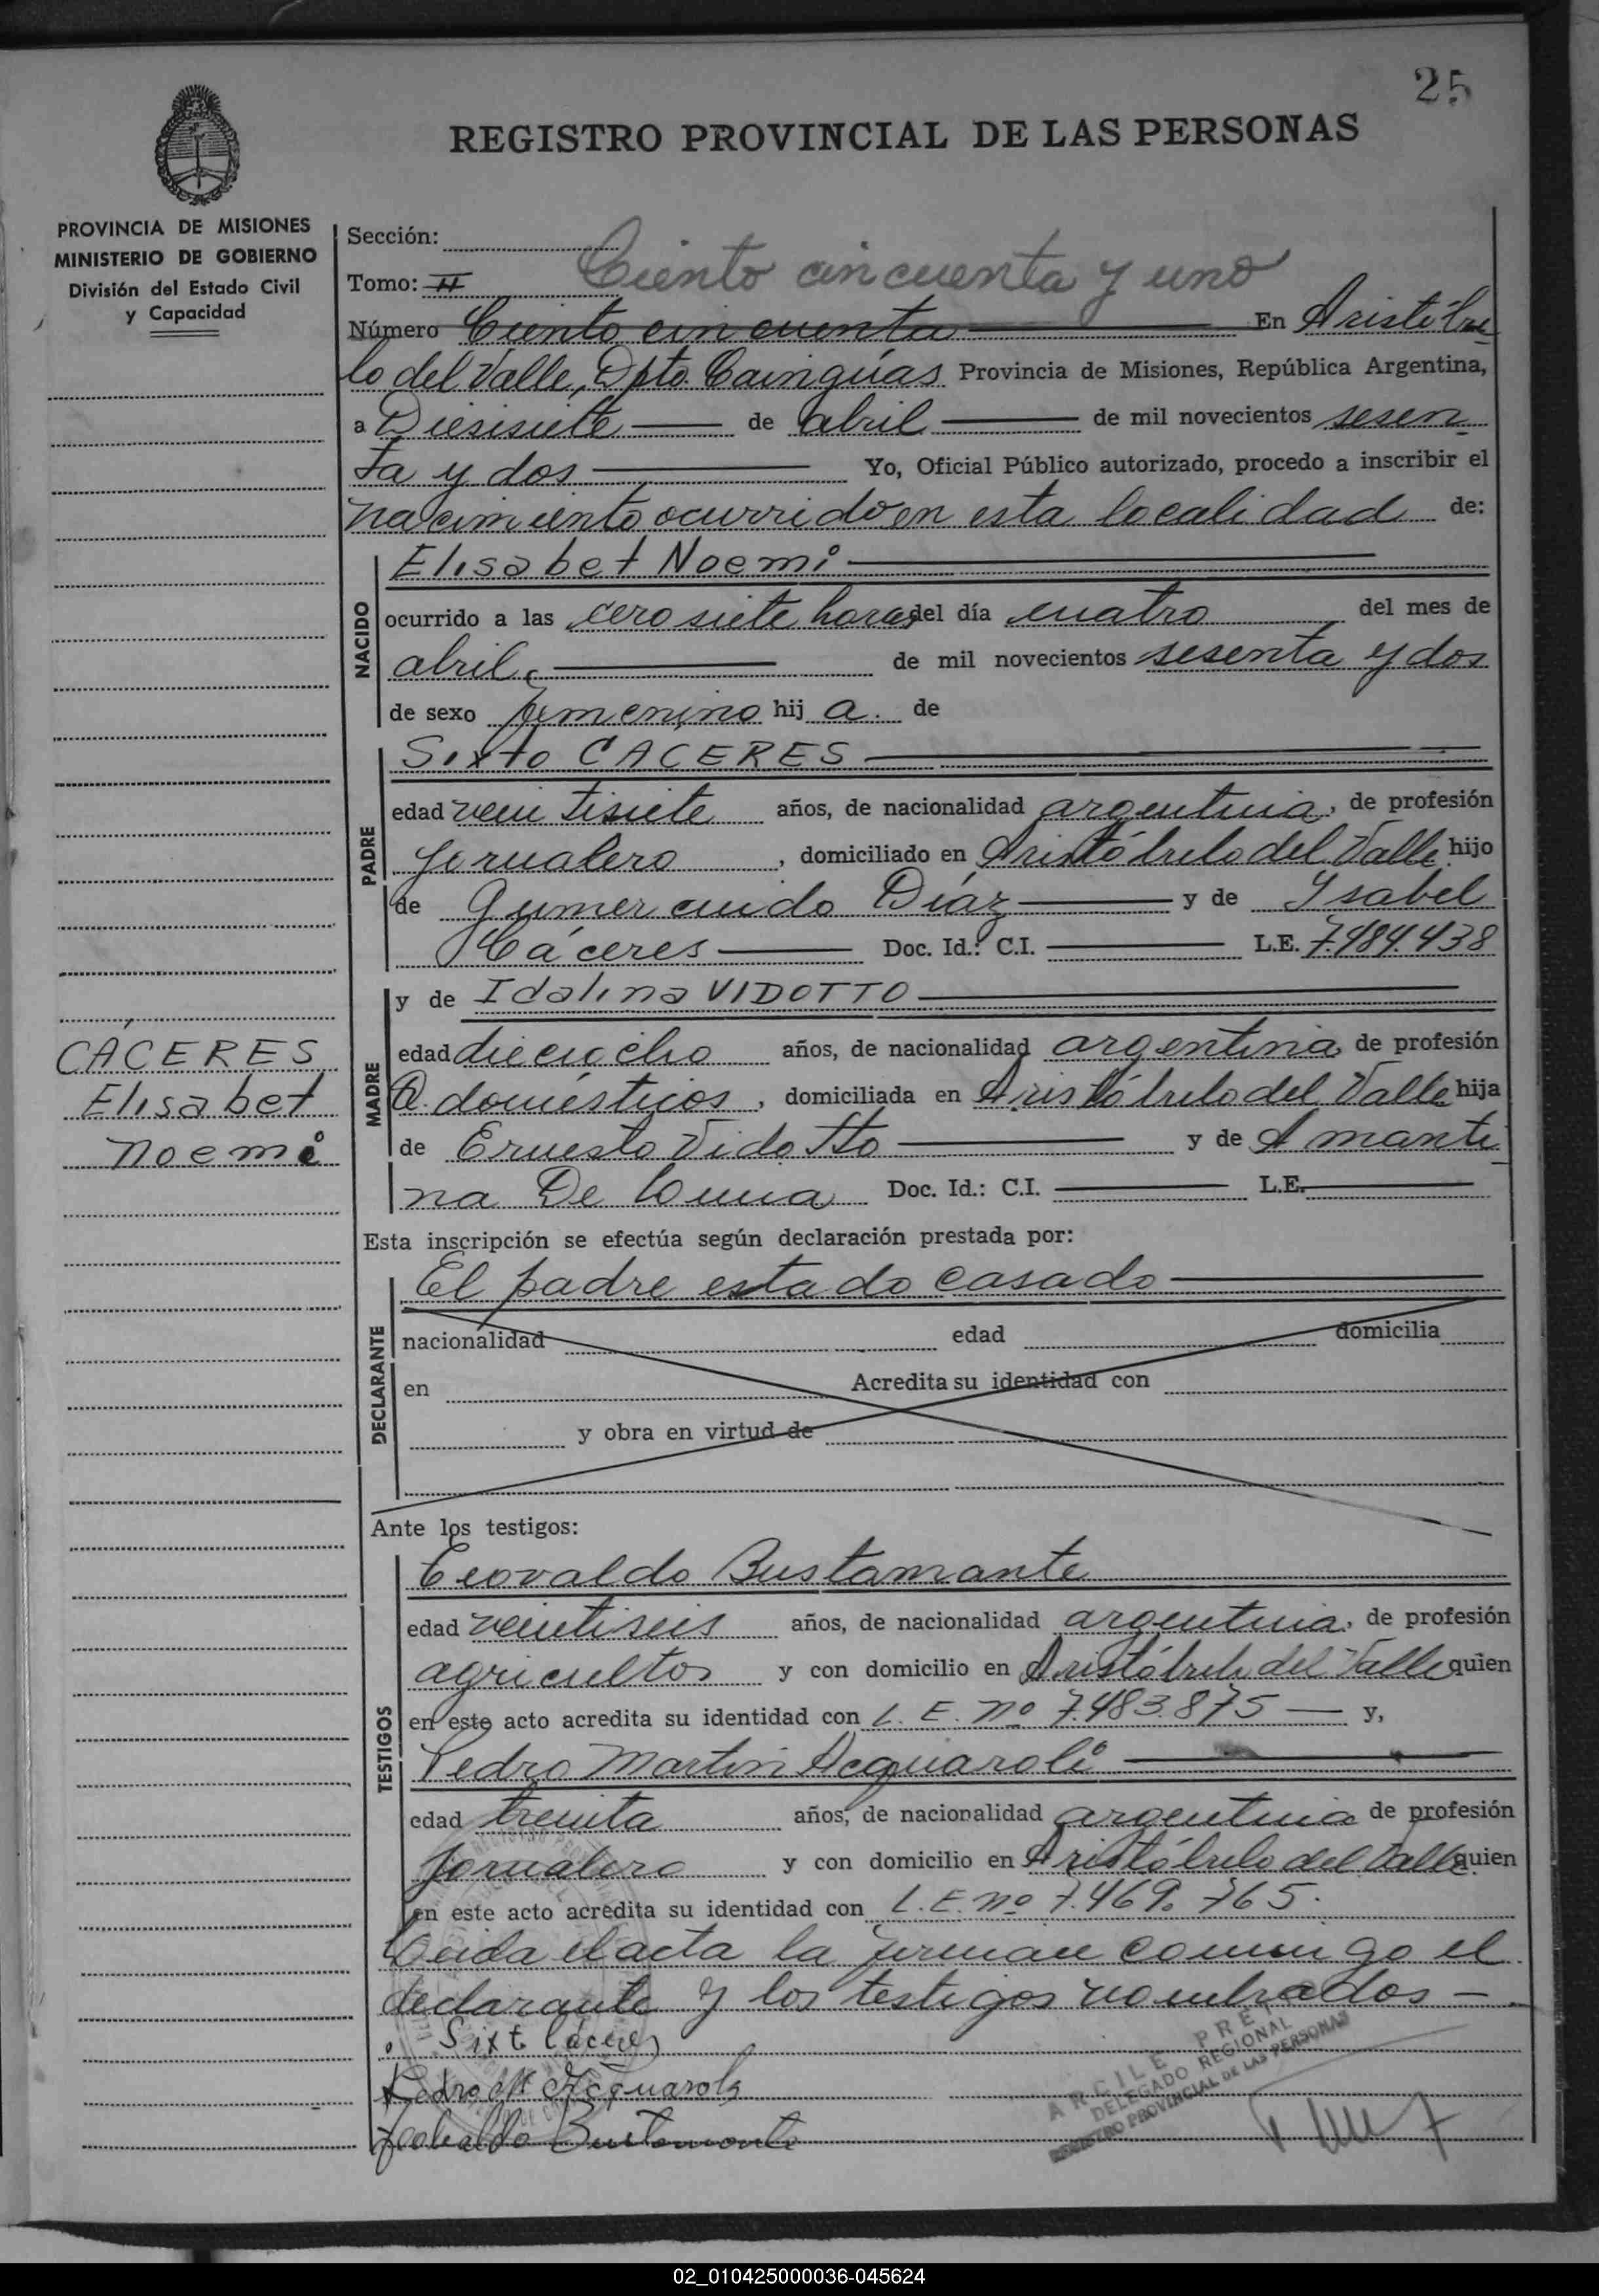 25
REGISTRO PROVINCIAL DE LAS PERSONAS
PROVINCIA DE MISIONES
MINISTERIO DE GOBIERNO
División del Estado Civil
y Capacidad
Sección:
Tomo: II
Ciento cincuenta y uno
Número Ciento cincuenta En Aristóbu
lo del Valle, Dpto Cainguás Provincia de Misiones, República Argentina,
a Diesisiete de abril de mil novecientos sesen
ta y dos Yo, Oficial Público autorizado, procedo a inscribir el
nacimiento ocurrido en esta localidad de:
NACIDO
Elisabet Noemi
ocurrido a las cero siete horas del día cuatro del mes de
abril de mil novecientos sesenta y dos
de sexo femenino hij a. de
PADRE
Sixto CACERES
edad veintisiete años, de nacionalidad argentina, de profesión
Jornalero, domiciliado en Aristóbulo del Valle hijo
de Gumercindo Díaz y de Ysabel
Cáceres Doc. Id.: C.I. L.E. 7.484.438
MADRE
y de Idalina VIDOTTO
edad dieciocho años, de nacionalidad argentina, de profesión
Q. domésticos, domiciliada en Aristóbulo del Valle hija
de Ernesto Vidotto y de Amanti
na De Doc. Id.: C.I. L.E.
CÁCERES
Elisabet
Noemi
Esta inscripción se efectúa según declaración prestada por:
DECLARANTE
El padre estado casado
nacionalidad edad domicilia
en Acredita su identidad con
y obra en virtud de
Ante los testigos:
TESTIGOS
Teovaldo Bustamante
edad veintiseis años, de nacionalidad argentina, de profesión
agricultor y con domicilio en Aristóbulo del Valle quien
en este acto acredita su identidad con L. E. nº 7.483.875 y,
Pedro Martin Acquaroli
edad treinta años, de nacionalidad argentina de profesión
Jornalero y con domicilio en Aristóbulo del Valle quien
en este acto acredita su identidad con L.E. nº 7.469.765.
Leida el acta la firman conmigo el
declarante y los testigos nombrados
Sixto Cáceres
Pedro M Acquaroli
Teobaldo Bustamante
ARCILE PRET
DELEGADO REGIONAL
REGISTRO PROVINCIAL DE LAS PERSONAS
02_010425000036-045624